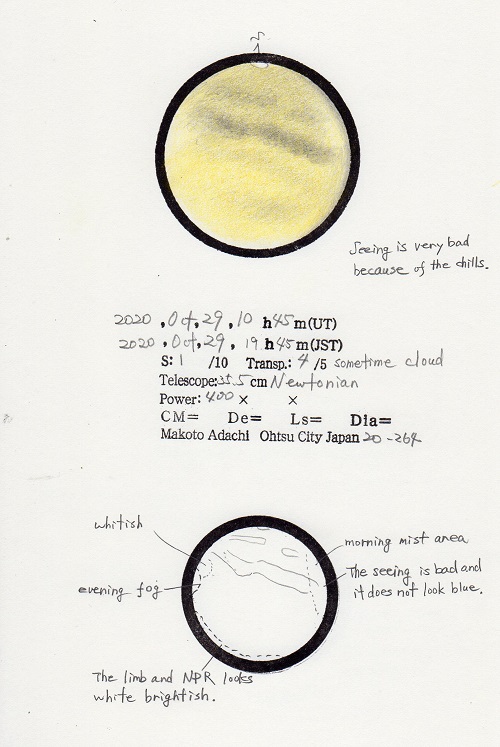 Seeing is very bad
because of the chills.
2020 , Oct, 29 , 10 h 45 m(UT)
2020 , Oct, 29 , 19 h 45 m(JST)
S: 1 /10 Transp.: 4 /5 sometime cloud
Telescope: 35.5 cm Newtonian
Power: 400 × ×
CM= De= Ls= Dia=
Makoto Adachi Ohtsu City Japan 20-264
whitish
morning mist area
The seeing is bad and
it does not look blue.
evening fog
The limb and NPR looks
white brightish.